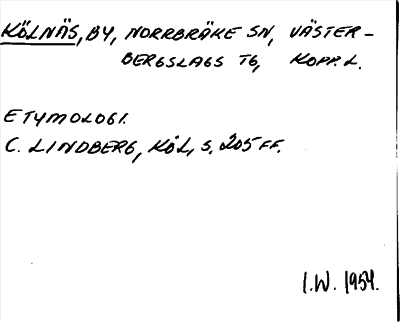 KÖLNÄS, BY, NORRBRÄKE SN, VÄSTER-
BERGSLAGS TG, KOPP. L.
ETYMOLOGI.
C. LINDBERG, KÖL, S. 205 FF.
I.W. 1954.